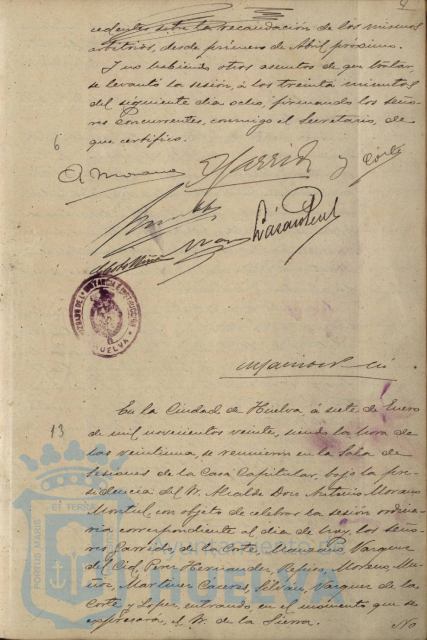 4
cedentes sobre la recaudación de los mismos
arbitrios, desde primero de Abril próximo.
Y no habiendo otros asuntos de que tratar,
se levantó la sesión, á los treinta minutos
del siguiente dia ocho, firmando los seño-
res Concurrentes, conmigo el Secretario, de
que certifico.
6
A Moreno Garrido y Corte
JUZGADO DE 1ª INSTANCIA É INSTRUCCION
HUELVA
13
En la Ciudad de Huelva, á siete de Enero
de mil novecientos veinte, siendo la hora de
las veintiuna, se reunieron en la Sala de
Sesiones de la Casa Capitular, bajo la pre-
sidencia del Sr. Alcalde Don Antonio Moreno
con objeto de celebrar la sesión ordina-
ria correspondiente al dia de hoy, los seño-
res Garrido, de la Corte, Vazquez
del Cid, Perez Hernandez, Moreno, Mu-
ñoz, Martinez Vazquez de la
Corte y Lopez, entrando, en el momento que se
expresará, el Sr. de la Sierra. No
PORTUS MARIS ET TERRAE
Ayuntamiento
HUELVA